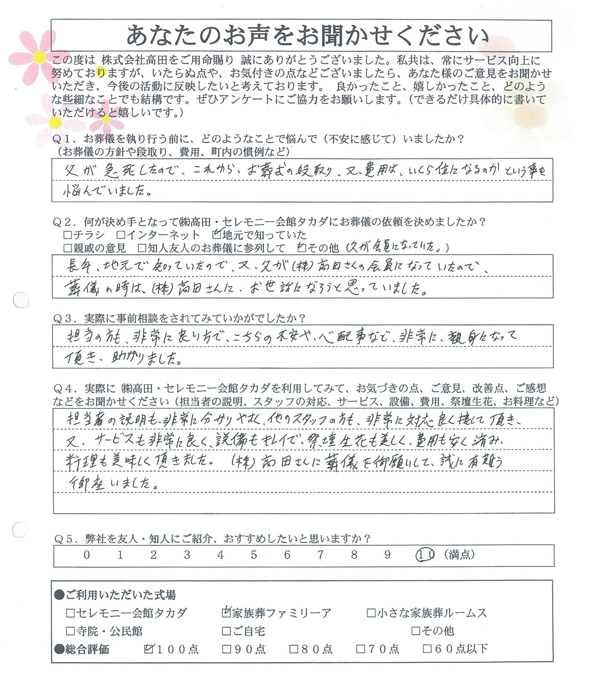 あなたのお声をお聞かせください
この度は 株式会社高田をご用命賜り 誠にありがとうございました。私共は、常にサービス向上に
努めておりますが、いたらぬ点や、お気付きの点などございましたら、あなた様のご意見をお聞かせ
いただき、今後の活動に反映したいと考えております。 良かったこと、嬉しかったこと、どのよう
な些細なことでも結構です。ぜひアンケートにご協力をお願いします。（できるだけ具体的に書いて
いただけると嬉しいです。）
Ｑ１．お葬儀を執り行う前に、どのようなことで悩んで（不安に感じて）いましたか？
（お葬儀の方針や段取り、費用、町内の慣例など）
父が急死したので、これから、お葬式の段取り、又、費用は、いくら位になるのかという事を
悩んでいました。
Ｑ２．何が決め手となって㈱高田・セレモニー会館タカダにお葬儀の依頼を決めましたか？
□チラシ □インターネット ☑地元で知っていた
□親戚の意見 □知人友人のお葬儀に参列して ☑その他（父が会員になっていた。）
長年、地元で知っていたので、又、父が(株)高田さんの会員になっていたので、
葬儀の時は、(株)高田さんに、お世話になろうと思っていました。
Ｑ３．実際に事前相談をされてみていかがでしたか？
担当の方も、非常に良い方で、こちらの不安や、心配事など、非常に、親身になって
頂き、助かりました。
Ｑ４．実際に ㈱高田・セレモニー会館タカダを利用してみて、お気づきの点、ご意見、改善点、ご感想
などをお聞かせください（担当者の説明、スタッフの対応、サービス、設備、費用、祭壇生花、お料理など）
担当者の説明も、非常に分かりやすく、他のスタッフの方も、非常に対応良く接して頂き、
又、サービスも非常に良く、設備もキレイで、祭壇生花も美しく、費用も安く済み、
料理も美味しく頂きました。(株)高田さんに葬儀を御願いして、誠に有難う
御座いました。
Ｑ５．弊社を友人・知人にご紹介、おすすめしたいと思いますか？
０ １ ２ ３ ４ ５ ６ ７ ８ ９ １０ （満点）
●ご利用いただいた式場
□セレモニー会館タカダ ☑家族葬ファミリーア □小さな家族葬ルームス
□寺院・公民館 □ご自宅 □その他
●総合評価 ☑１００点 □９０点 □８０点 □７０点 □６０点以下